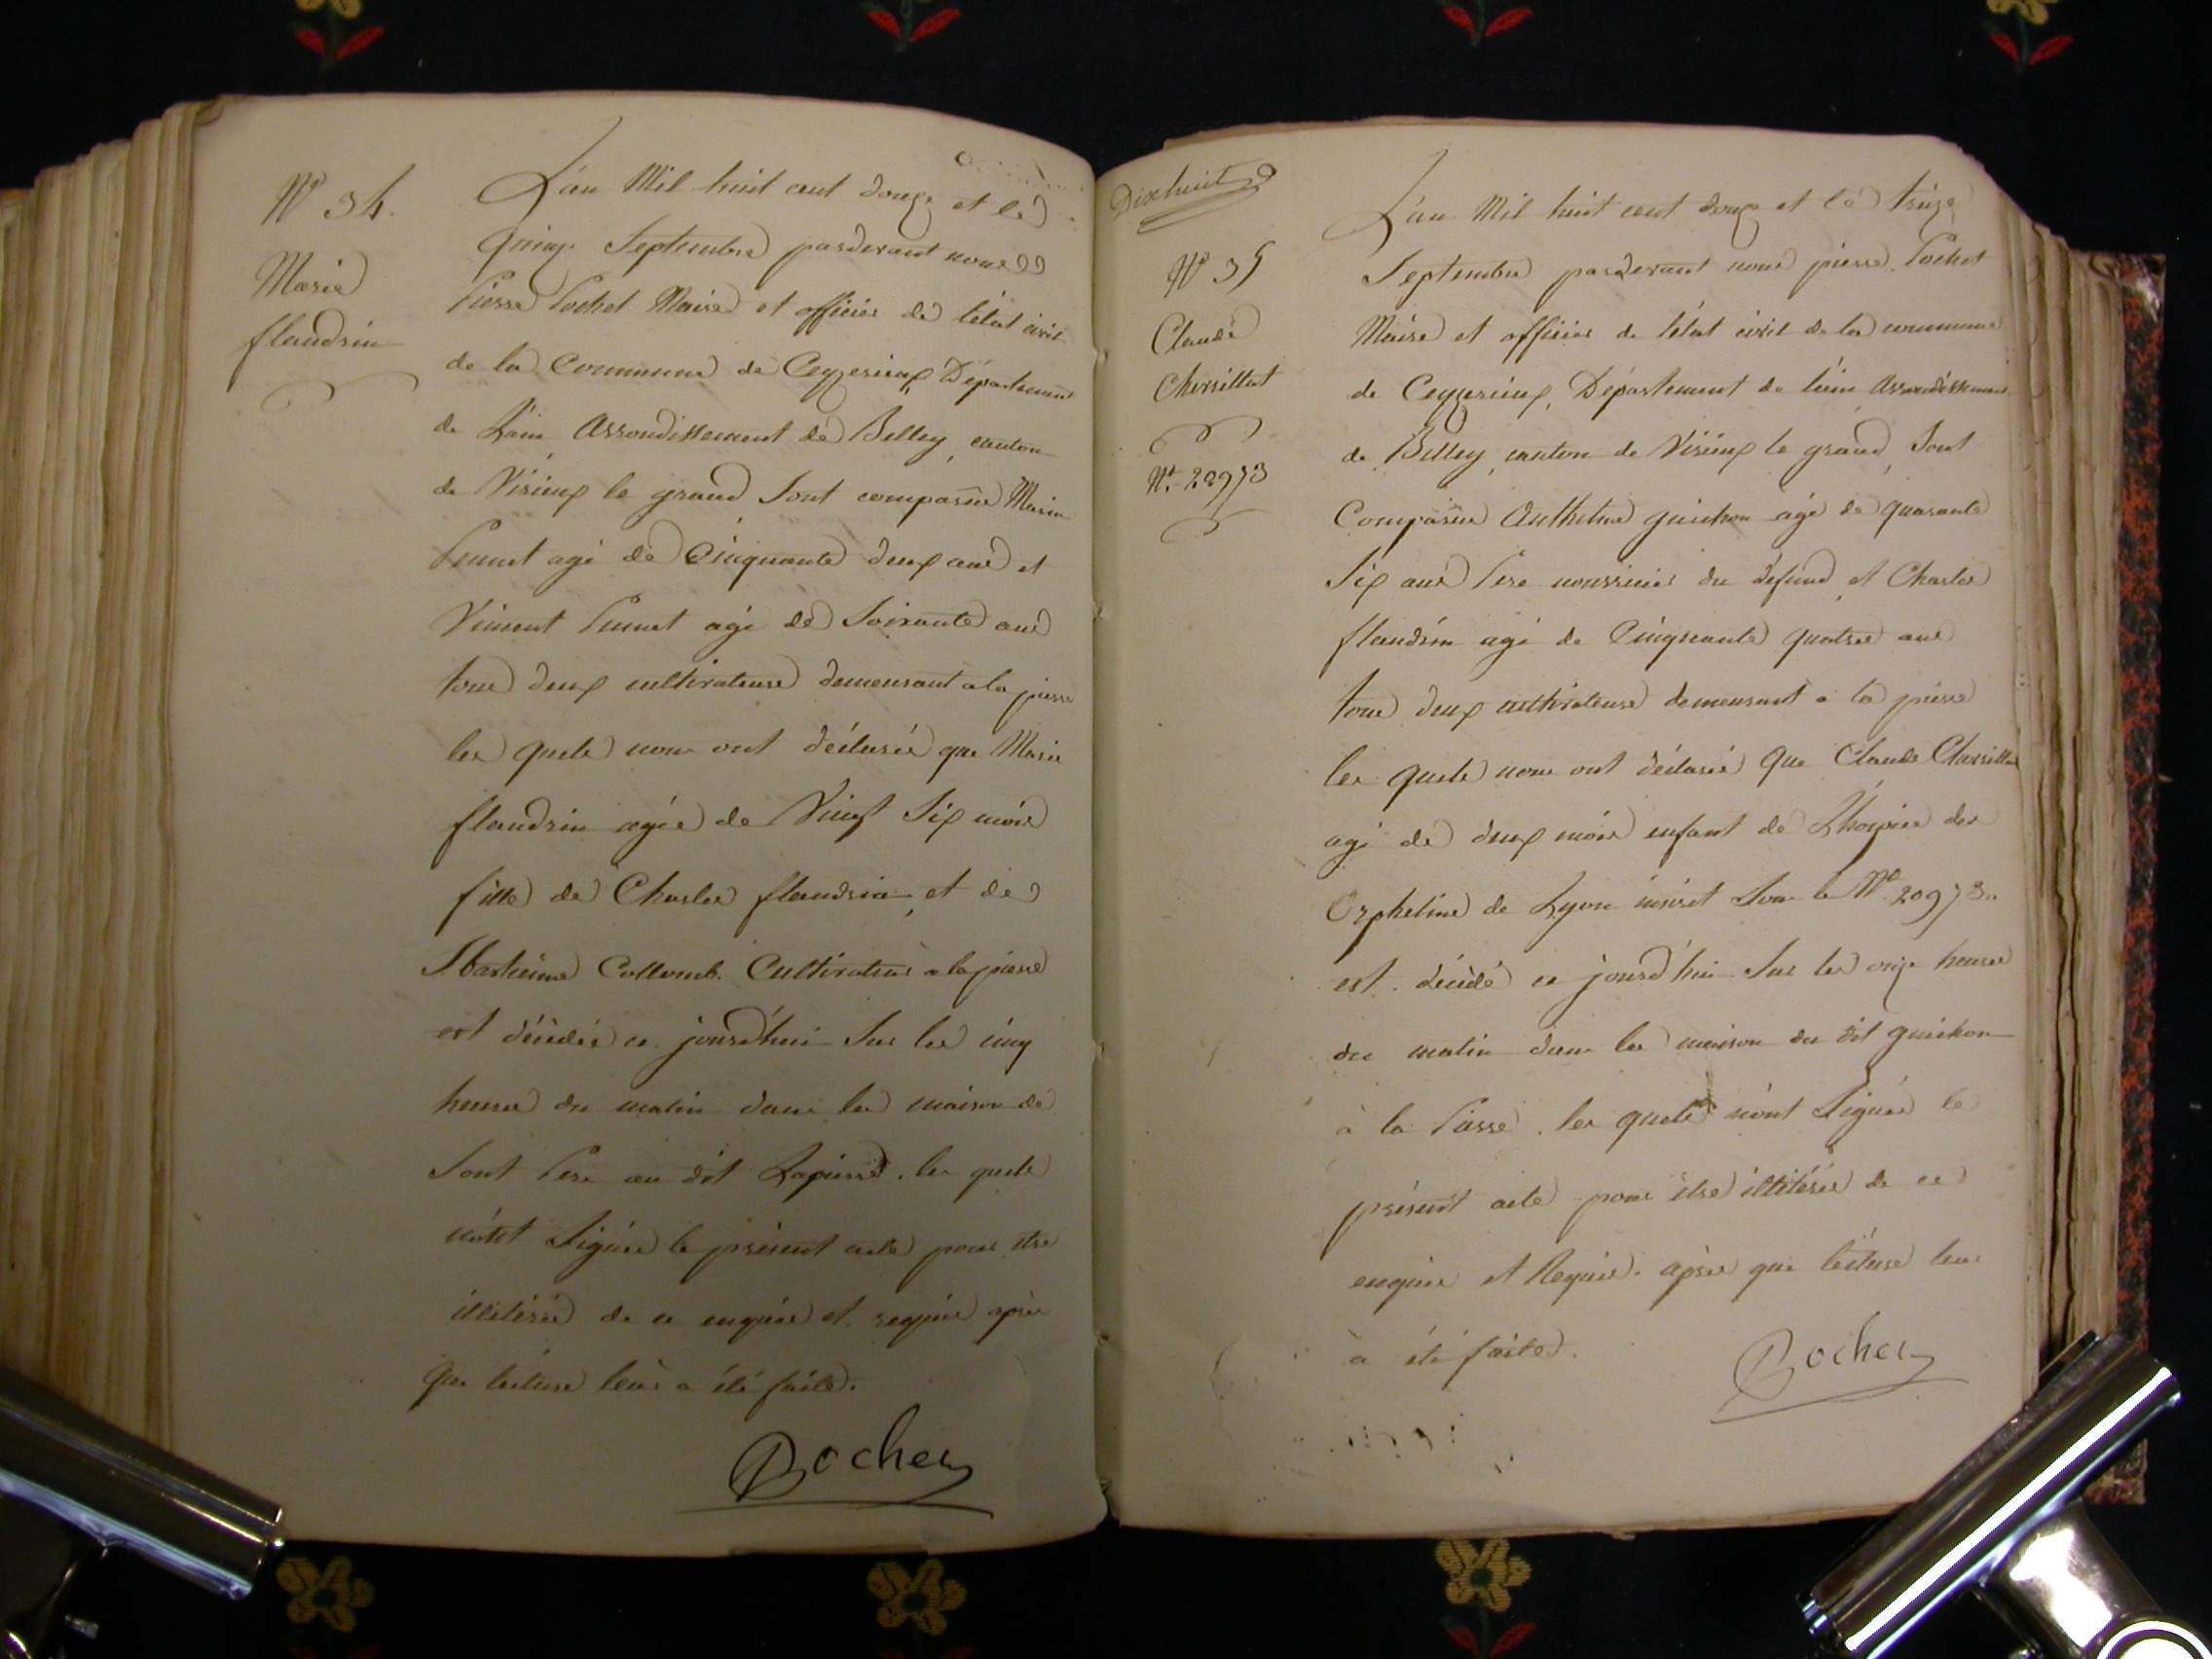 N° 34.
Marie
flandrin
L'an Mil huit cent douze et le
quinze Septembre pardevant nous
Pierre Pochet Maire et officier de l'état civil
de la Commune de Ceyzerieux Département
de L'ain Arrondissement de Belley, canton
de Virieux le grand Sont comparus Marin
agé de Cinquante deux ans et
Vincent agé de Soixante ans
tous deux cultivateurs demeurant a la pierre
les quels nous ont déclarés que Marie
flandrin agée de Vingt Six mois
fille de Charles flandrin, et de
Collomb. Cultivateur a la pierre
est décédée ce jourd'hui Sur les cinq
heures du matin dans la maison de
Sont Pere au dit Lapierre. les quels
n'ont Signés le présent acte pour etre
illiterés de ce enquis et requis après
que lecture leur a été faite.
Bochez
Dixhuit
N° 35
Claude
Chersillat
N°. 20973
L'an Mil huit cent douze et le treize
Septembre pardevant nous pierre Pochet
Maire et officier de l'état civil de la commune
de Ceyzerieux, Département de l'ain Arrondissement
de Belley, canton de Virieux le grand, Sont
Comparus Anthelme guichon agé de quarante
Six ans Pere nourricier du defund, et Charles
flandrin agé de Cinquante quatre ans
tous deux cultivateurs demeurant a la pierre
les quels nous ont déclarés que Claude Chersillat
agé de deux mois enfant de L'hospice des
Orphelins de Lyon inscrit Sous le N° 20973..
est décédé ce jourd'hui Sur les onze heures
du matin dans la maison du dit guichon
à la Pierre. les quels n'ont Signés le
présent acte pour etre illiterés de ce
enquis et Requis. après que lecture leur
à été faite.
Bochez